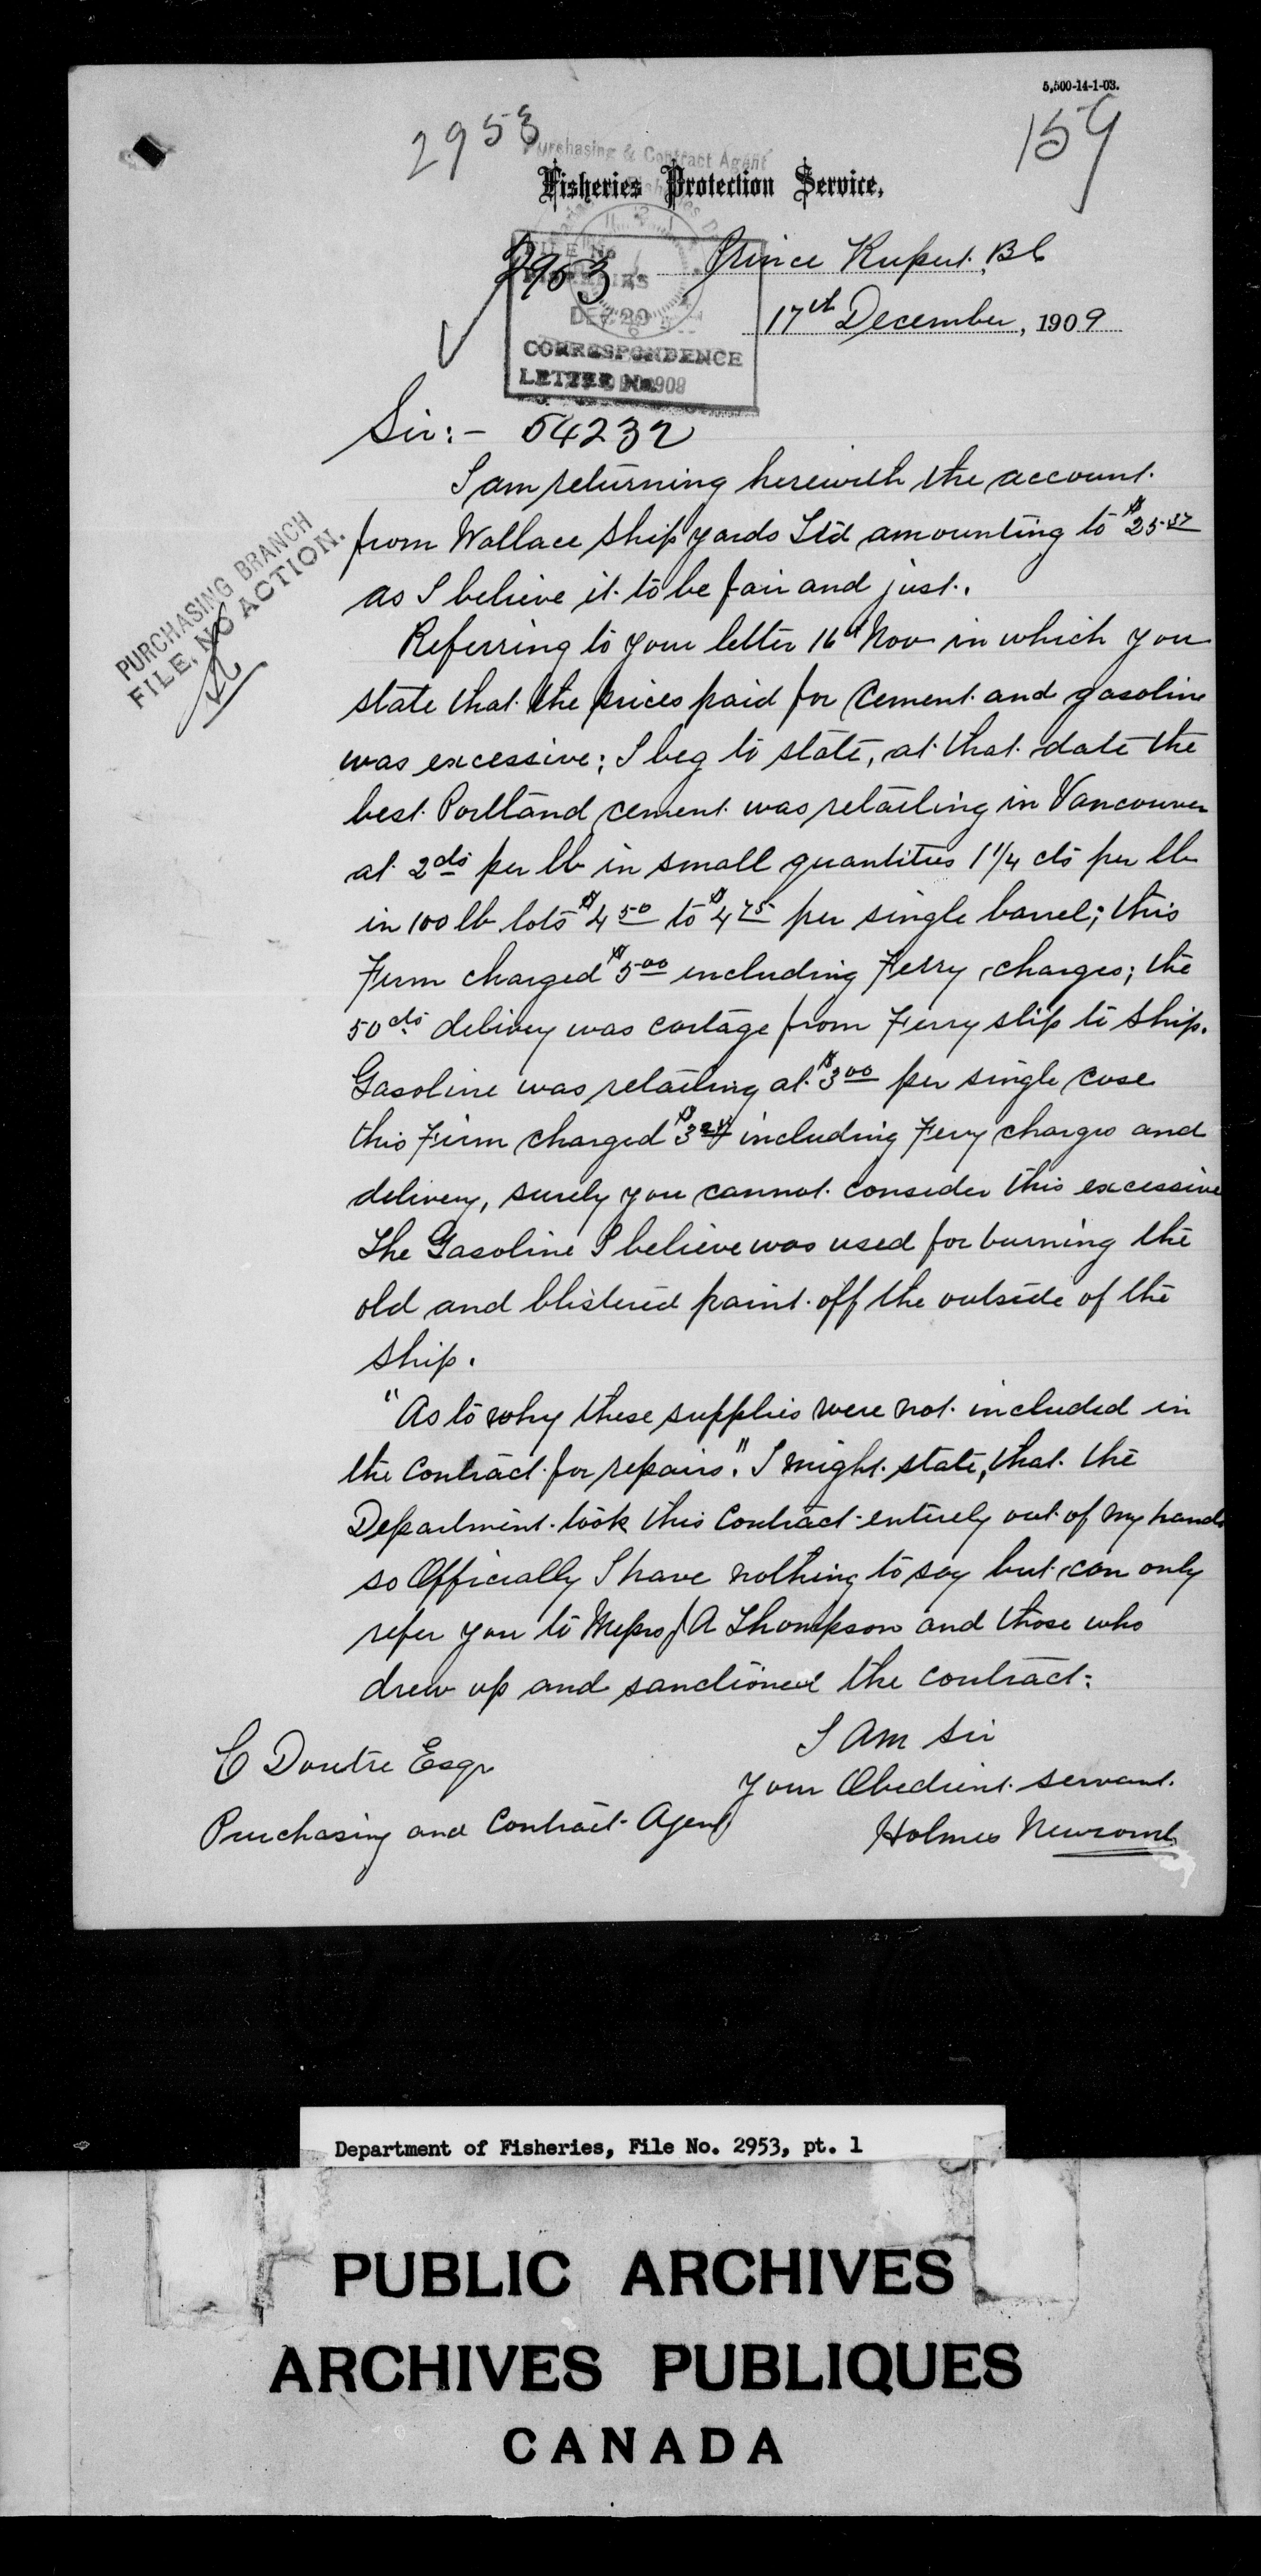 5,500-14-1-03.
2953
159
Purchasing & Contract Agent
Fisheries Protection Service,
FILE No
2953
Prince Rupert, B C
17th December, 1909
CORRESPONDENCE
LETTER No.
Sir:- 54232
I am returning herewith the account
from Wallace Ship yards Ltd amounting to $25.37
as I believe it to be fair and just.
PURCHASING BRANCH
FILE, NO ACTION.
Referring to your letter 16th Nov in which you
state that the prices paid for Cement and gasoline
was excessive; I beg to state, at that date the
best Portland cement was retailing in Vancouver
at 2cts per lb in small quantities 1 1/4 cts per lb
in 100 lb lots $4 50 to $4 75 per single barrel; this
Firm charged $5 00 including Ferry charges; the
50 cts delivery was cartage from Ferry slip to ship.
Gasoline was retailing at $3 00 per single case
this Firm charged $3 including Ferry charges and
delivery, surely you cannot consider this excessive
The Gasoline I believe was used for burning the
old and blistered paint off the outside of the
ship.
"As to why these supplies were not included in
the Contract for repairs." I might state, that the
Department took this Contract entirely out of my hands
so Officially I have nothing to say but can only
refer you to Messrs J A Thompson and those who
drew up and sanctioned the contract.
I Am Sir
Your Obedient servant
Holmes Newcomb
C Doutre Esqr
Purchasing and Contract Agent
Department of Fisheries, File No. 2953, pt. 1
PUBLIC ARCHIVES
ARCHIVES PUBLIQUES
CANADA